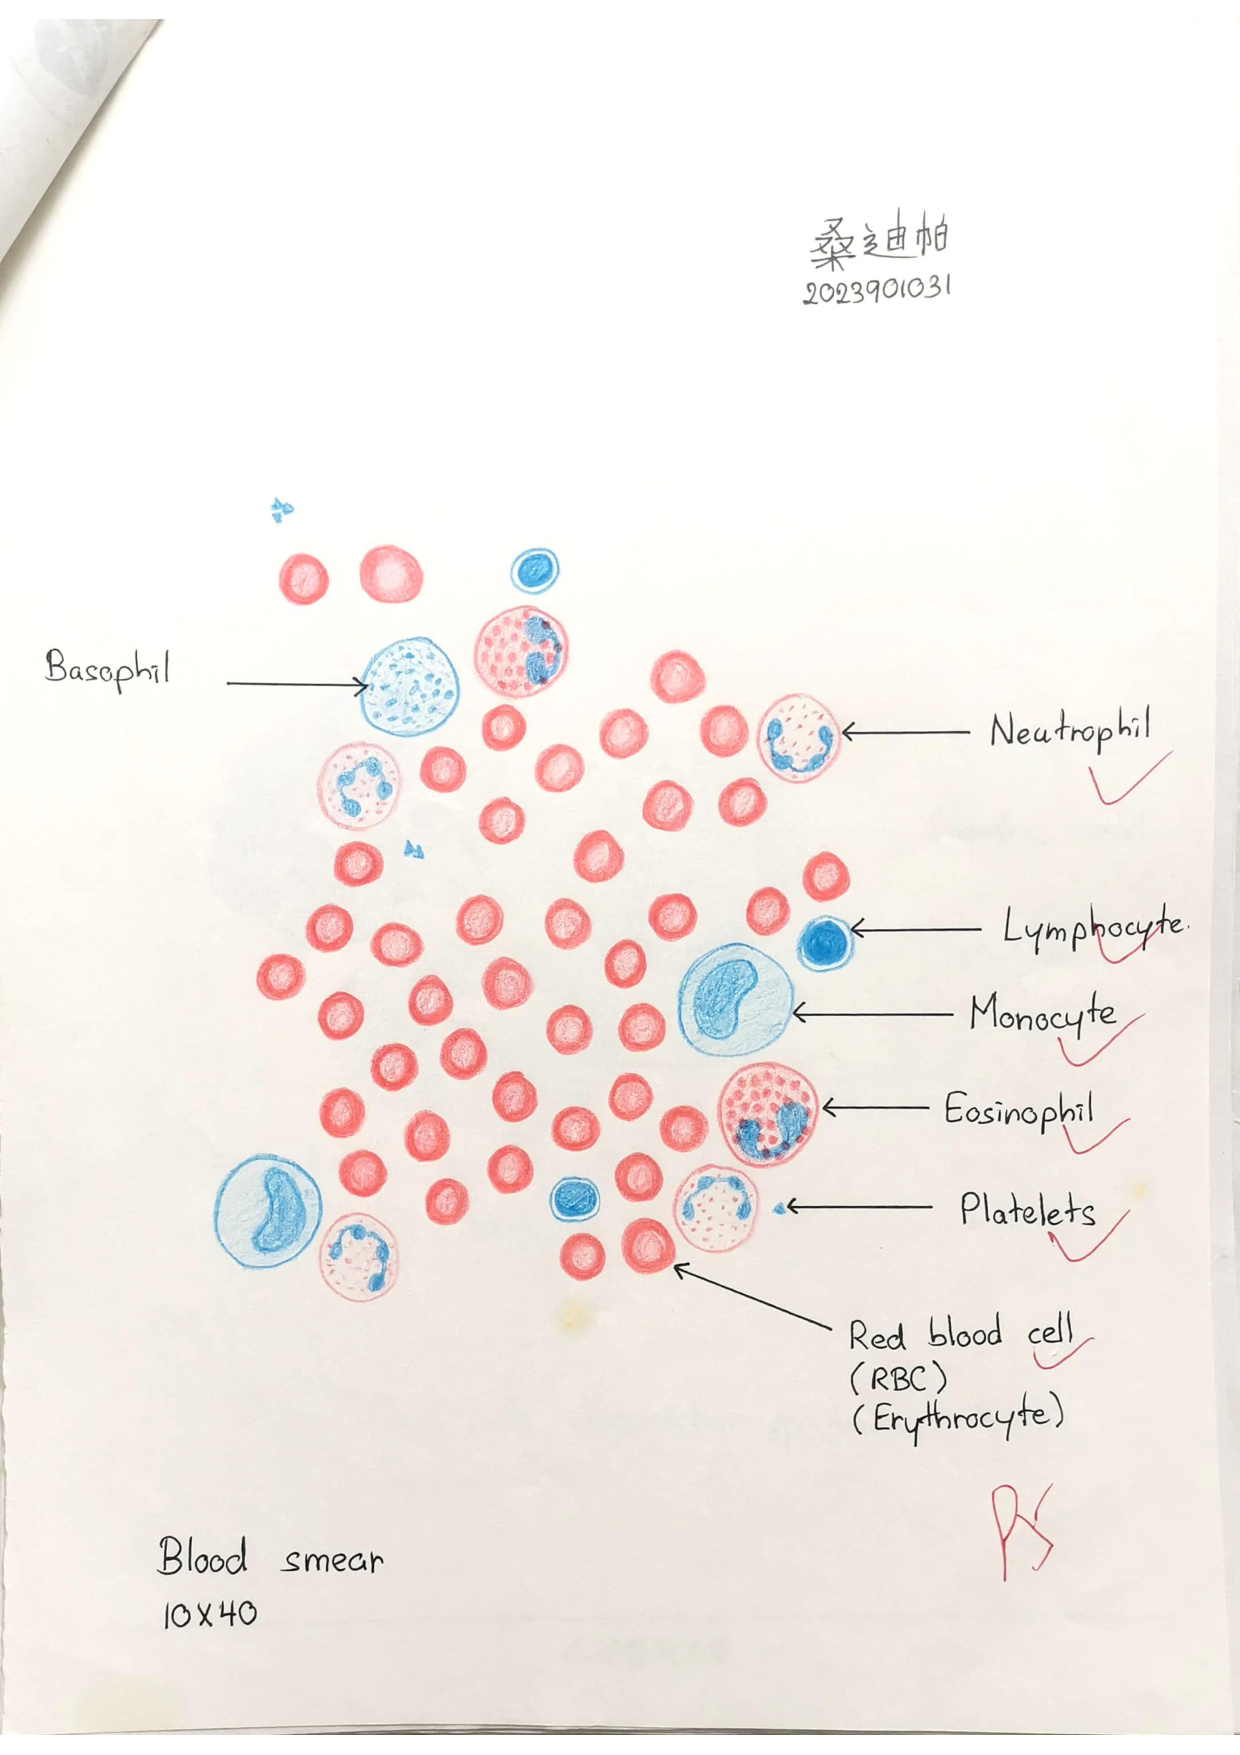 桑迪帕
2023901031
Basophil
Neutrophil
Lymphocyte.
Monocyte
Eosinophil
Platelets
Red blood cell
(RBC)
(Erythrocyte)
Blood smear
10X40